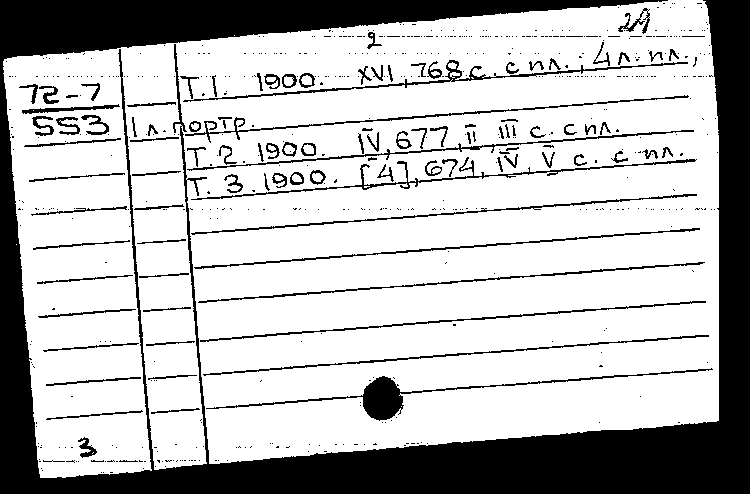 2
72-7 Т.1. 1900. XVI, 768 с. с пл.; 4 л. пл.,
553 1 л. портр.
Т.2. 1900. IV, 677, II, III с. с пл.
Т.3. 1900. [4], 674, IV, V с. с пл.
3